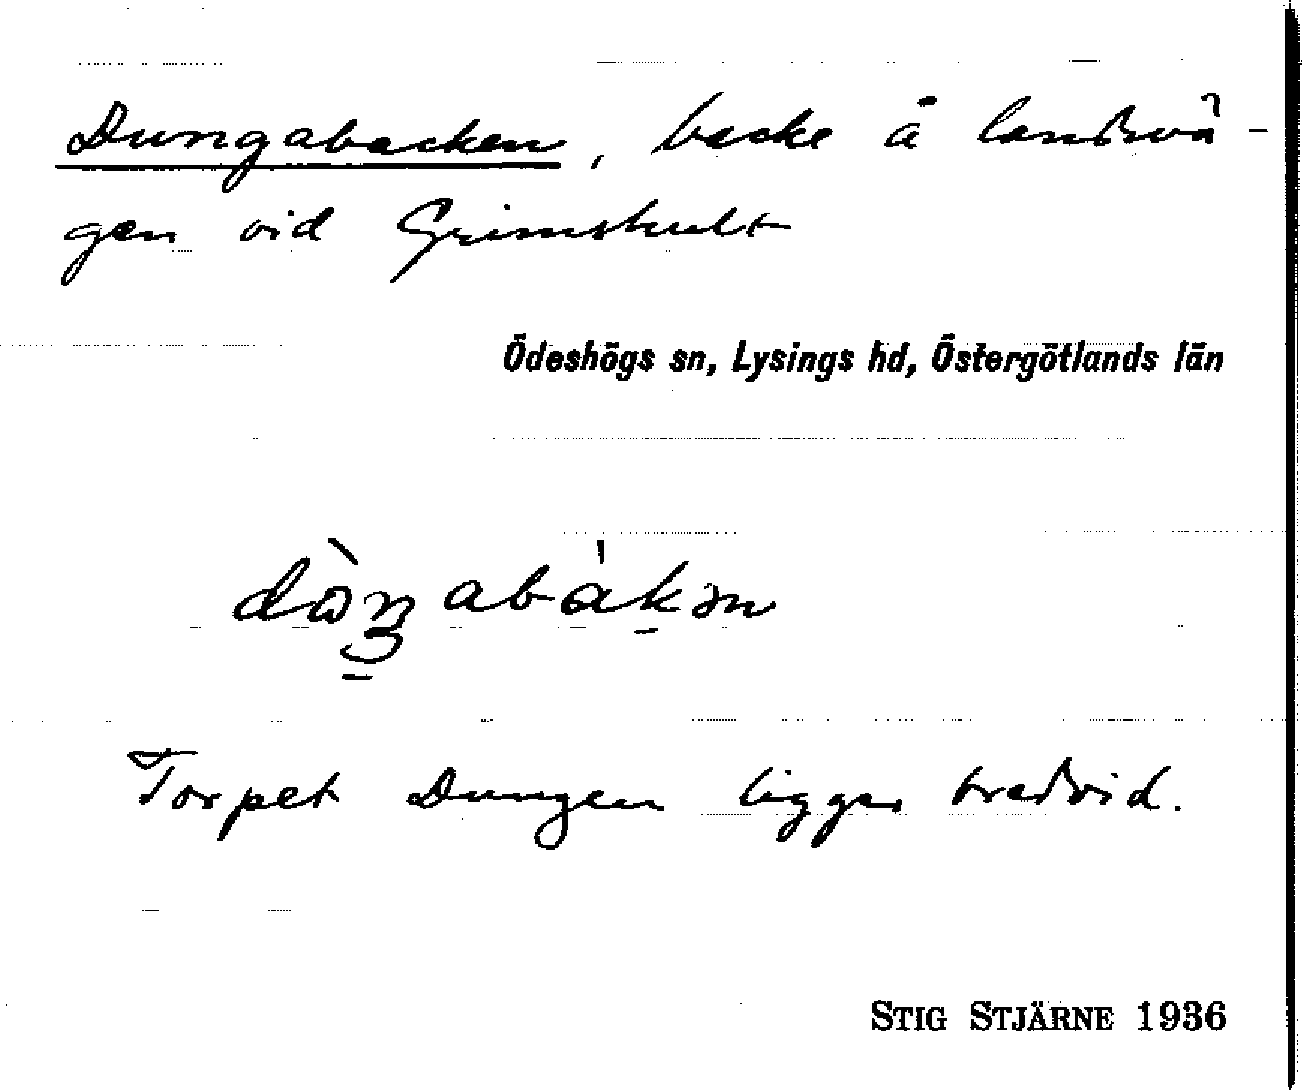 Dungabacken, backe å landsvä-
gen vid Grimshult
Ödeshögs sn, Lysings hd, Östergötlands län
Torpet Dungen ligger bredvid.
STIG STJÄRNE 1936